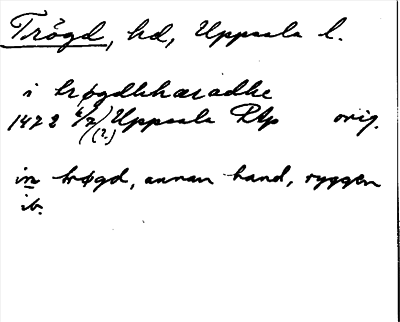 Trögd, hd, Uppsala l.
i trøgdhhæradhe
1472 6/2 Uppsala Rtp orig.
(?)
in trøgd, annan hand, ryggen
ib.